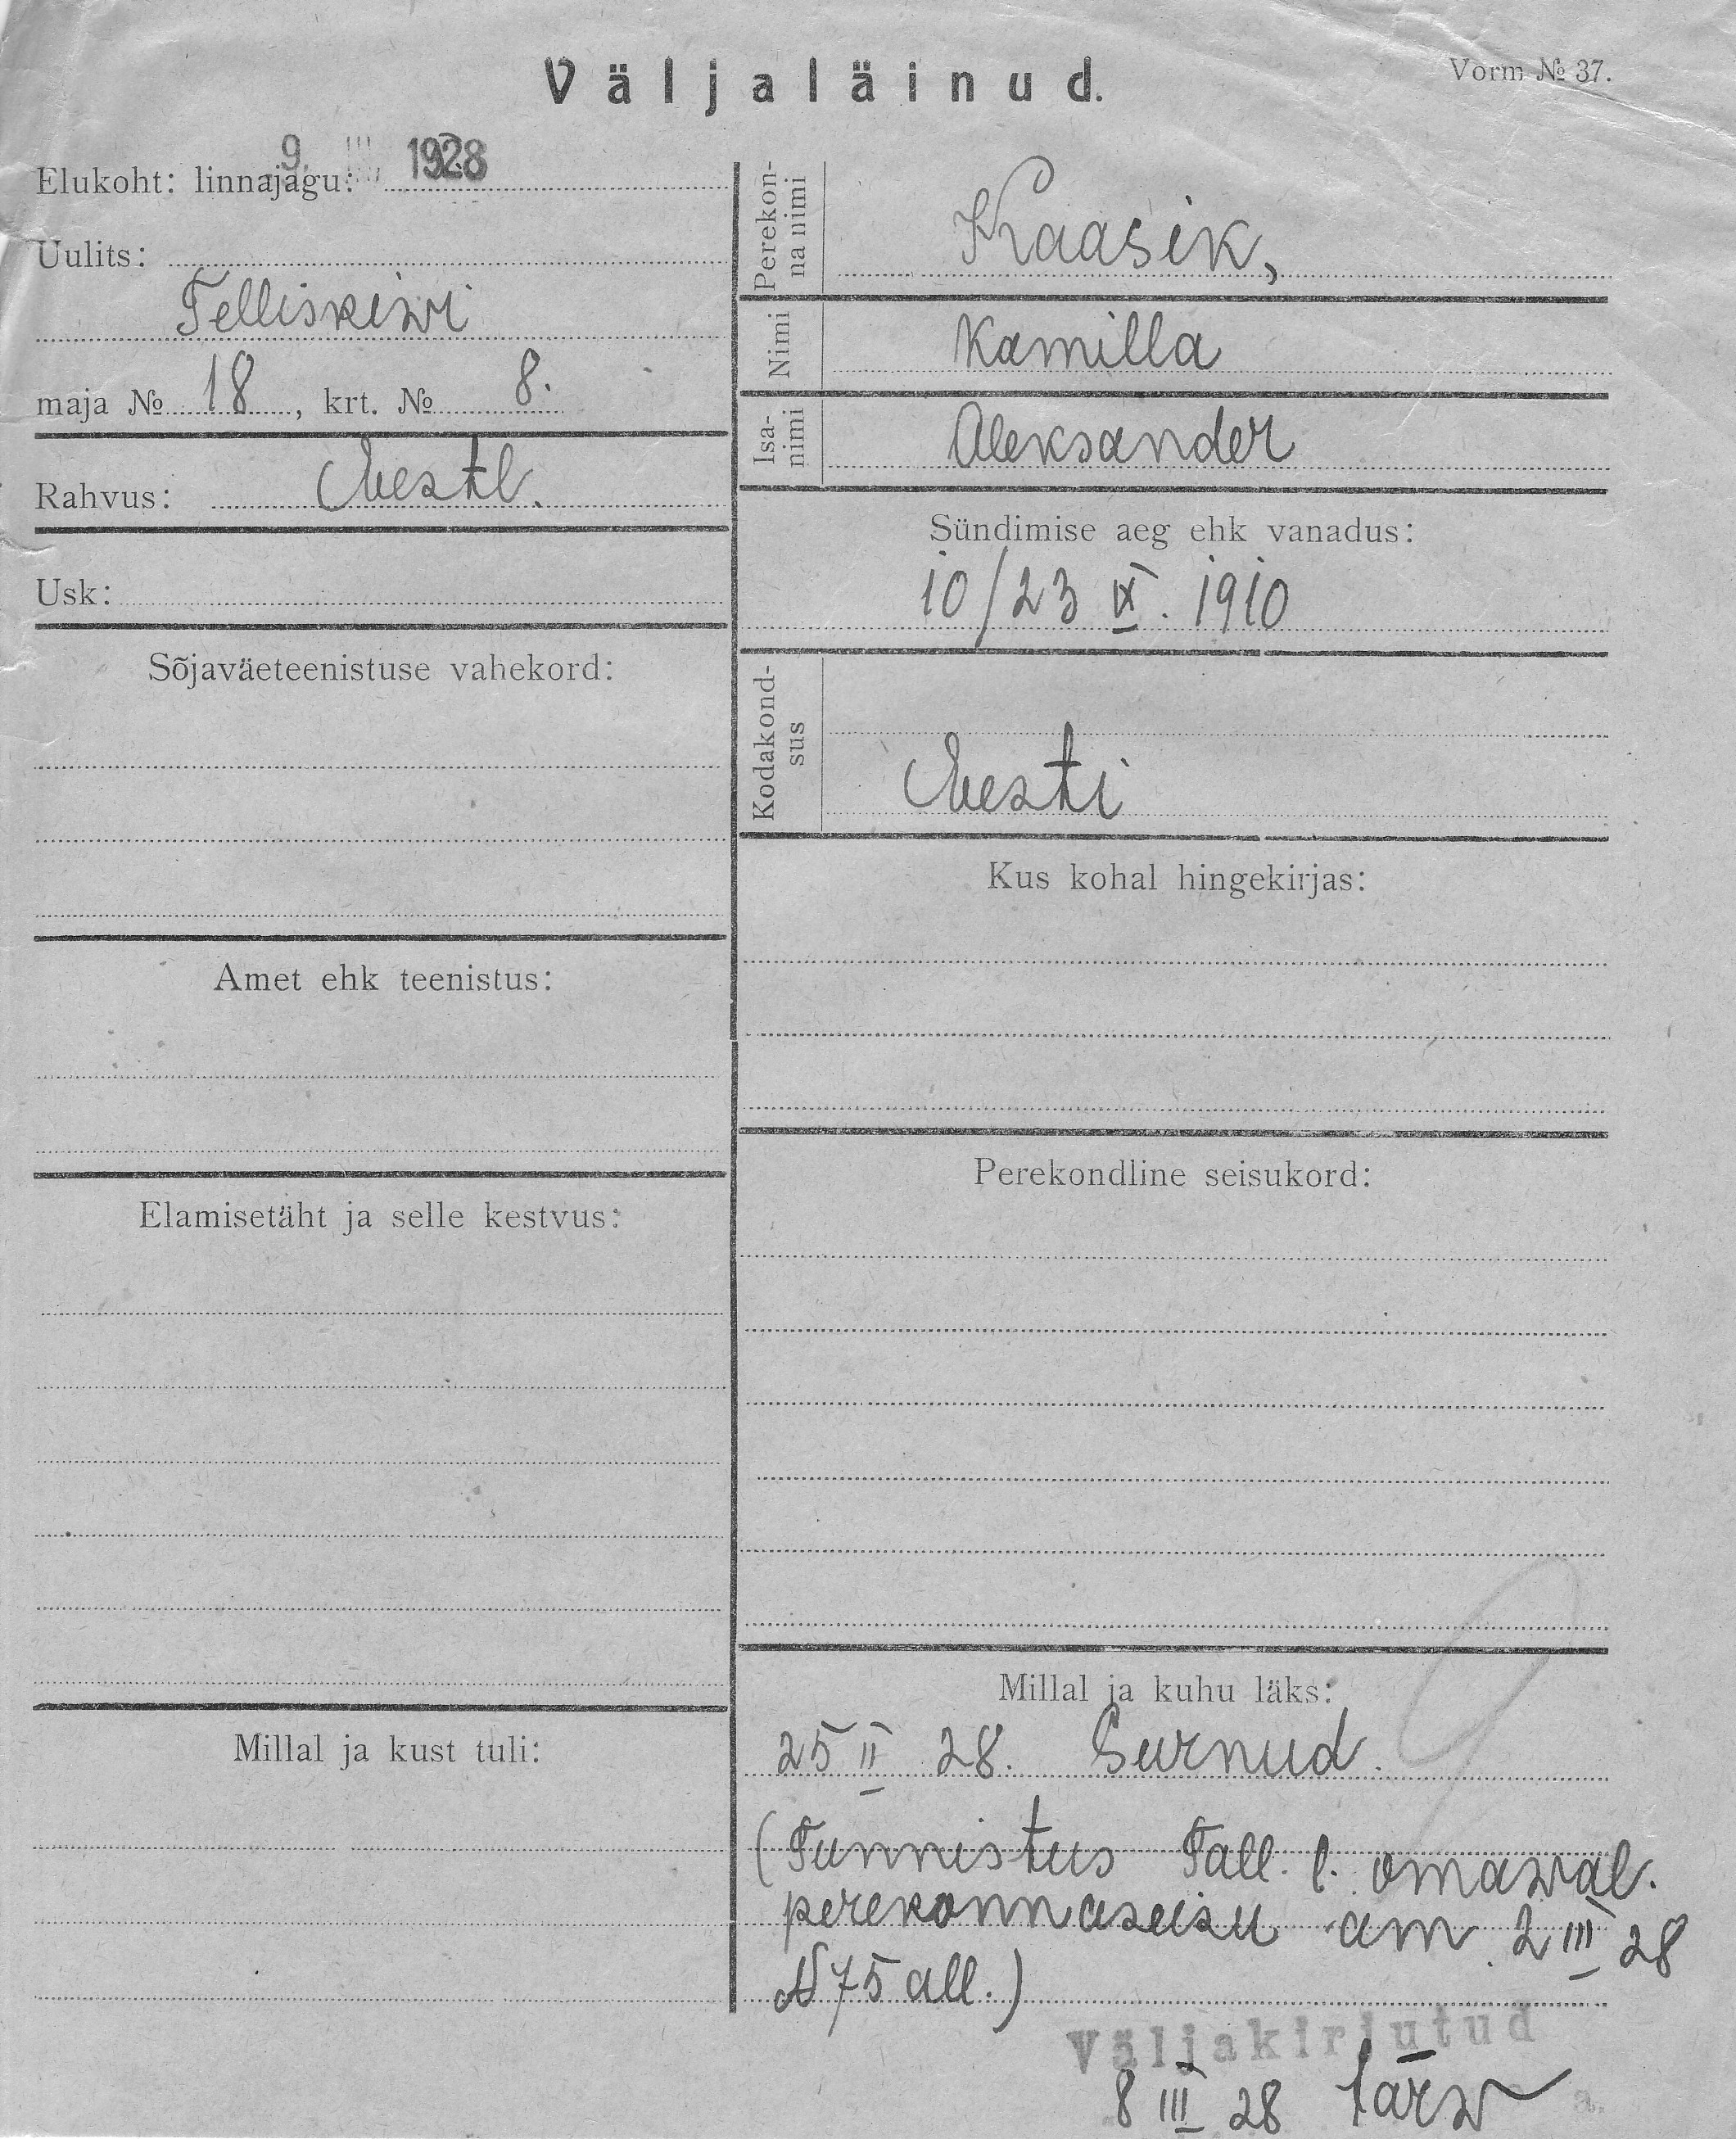 Väljaläinud.
Vorm № 37.
9. III 1928
Elukoht: linnajagu:
Uulits:
Telliskiwi
maja № 18, krt. № 8.
Rahvus: Eestl.
Usk:
Sõjaväeteenistuse vahekord:
Amet ehk teenistus:
Elamisetäht ja selle kestvus:
Millal ja kust tuli:
Perekon-
na nimi
Kaasik,
Nimi
Kamilla
Isa-
nimi
Aleksander
Sündimise aeg ehk vanadus:
10/23 IX. 1910
Kodakond-
sus
Eesti
Kus kohal hingekirjas:
Perekondline seisukord:
Millal ja kuhu läks:
25 II 28. Surnud.
(Tunnistus Tall. l. omawal.
perekonnaseisu am. 2 III 28
N 75 all.)
Väljakirjutud
8 III 28 a.